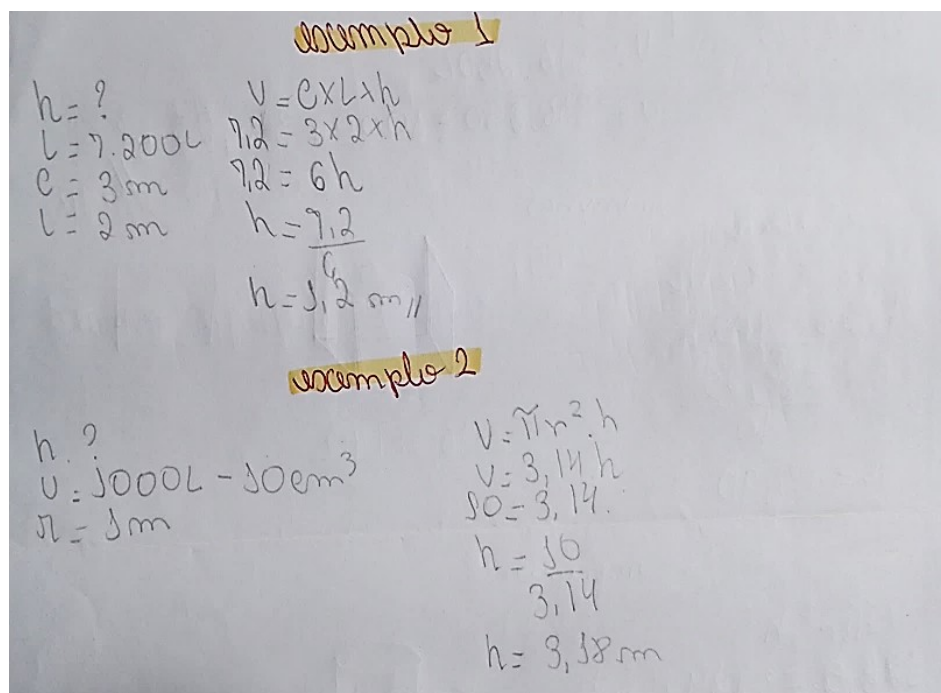 exemplo 1
h = ?
l = 7.200L
C = 3m
l = 2m
V = C x L x h
7,2 = 3 x 2 x h
7,2 = 6h
h = 7,2
6
h = 1,2 m //
exemplo 2
h. ?
V = 1000L - 10cm³
r = 1m
V = πr².h
V = 3,14.h
10 = 3,14.
h = 10
3,14
h = 3,18m